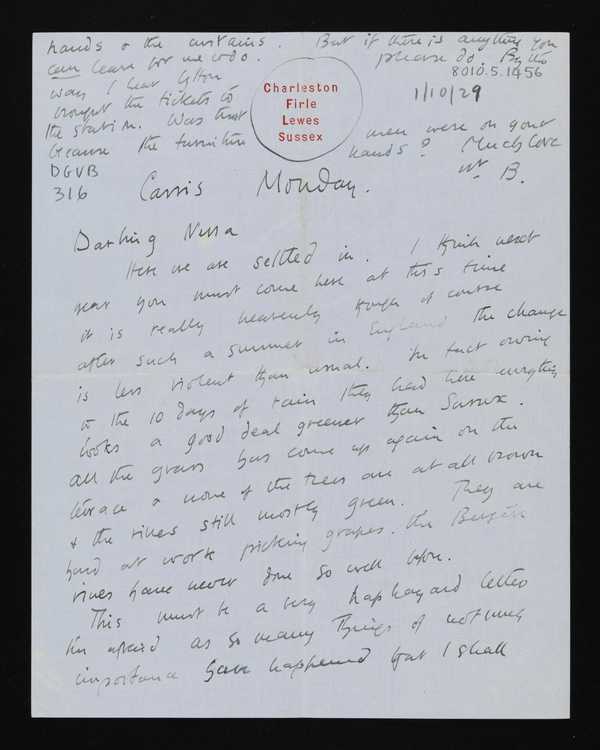 hands & the curtains. But if there is anything you
can leave for me to do. please do. By the
way I hear Lytton
brought the tickets to
the station. Was that
because the furniture men were on your
hands? Much love
yr B.
8010.5.1456
1/10/29
Charleston
Firle
Lewes
Sussex
DGVB
316
Cassis Monday.
Darling Nessa
Here we are settled in. I think next
year you must come here at this time
it is really heavenly though of course
after such a summer in England the change
is less violent than usual. In fact owing
to the 10 days of rain they had here everything
looks a good deal greener than Sussex.
All the grass has come up again on the
terrace & none of the trees are at all brown
& the vines still mostly green. They are
hard at work picking grapes. the
vines have never done so well before.
This must be a very haphazard letter
I'm afraid as so many things of not much
importance have happened but I shall